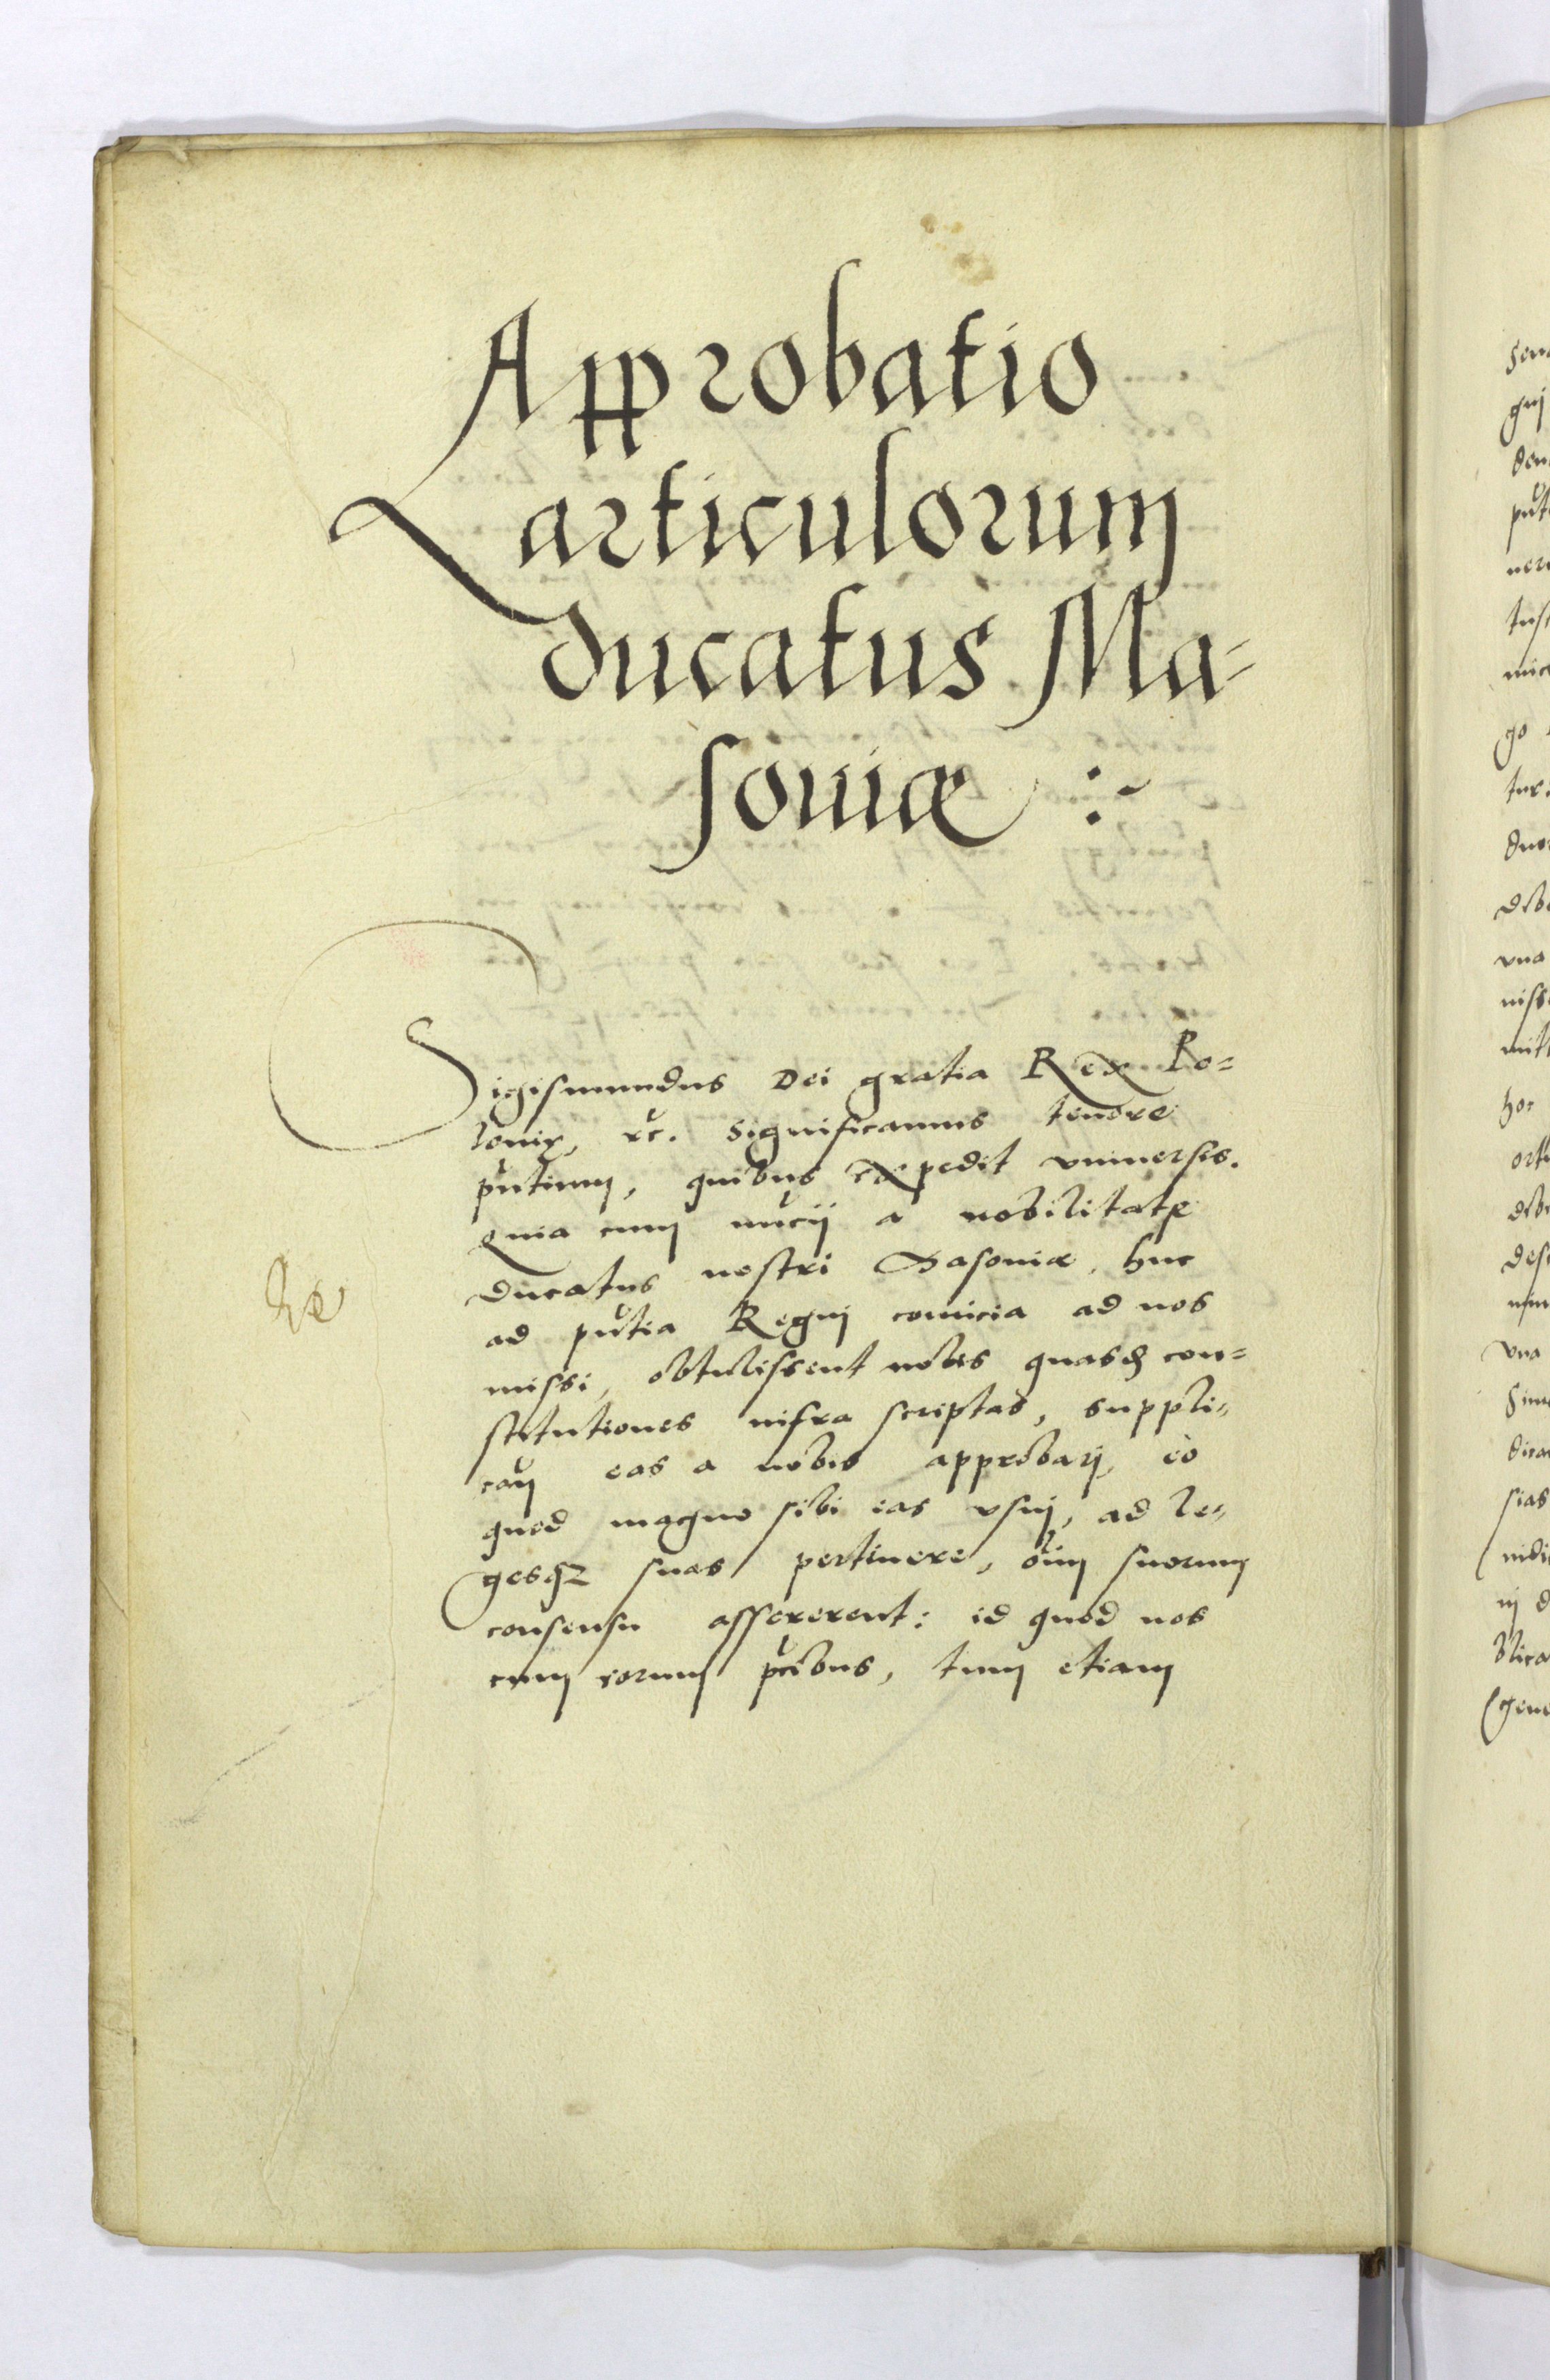 Approbatio
articulorum
ducatus Ma-
soviæ :~
Sigismundus Dei gratia Rex Po=
loniæ, etc. significamus tenore
pñtium, quibus expedit vniuersis.
Quia cum nũcij a nobilitate
Ducatus nostri Masoviæ, huc
ad pñtia Regni comicia ad nos
missi, obtulissent nobis quasd con=
stitutiones infra scriptas, suppli=
carẽ eas a nobis approbarj, eò
quod magno sibi eas vsuj, ad le=
gesqz suas pertinere, oĩm suorum
consensu assererent: id quod nos
cum eorum p̃cibus, tum etiam